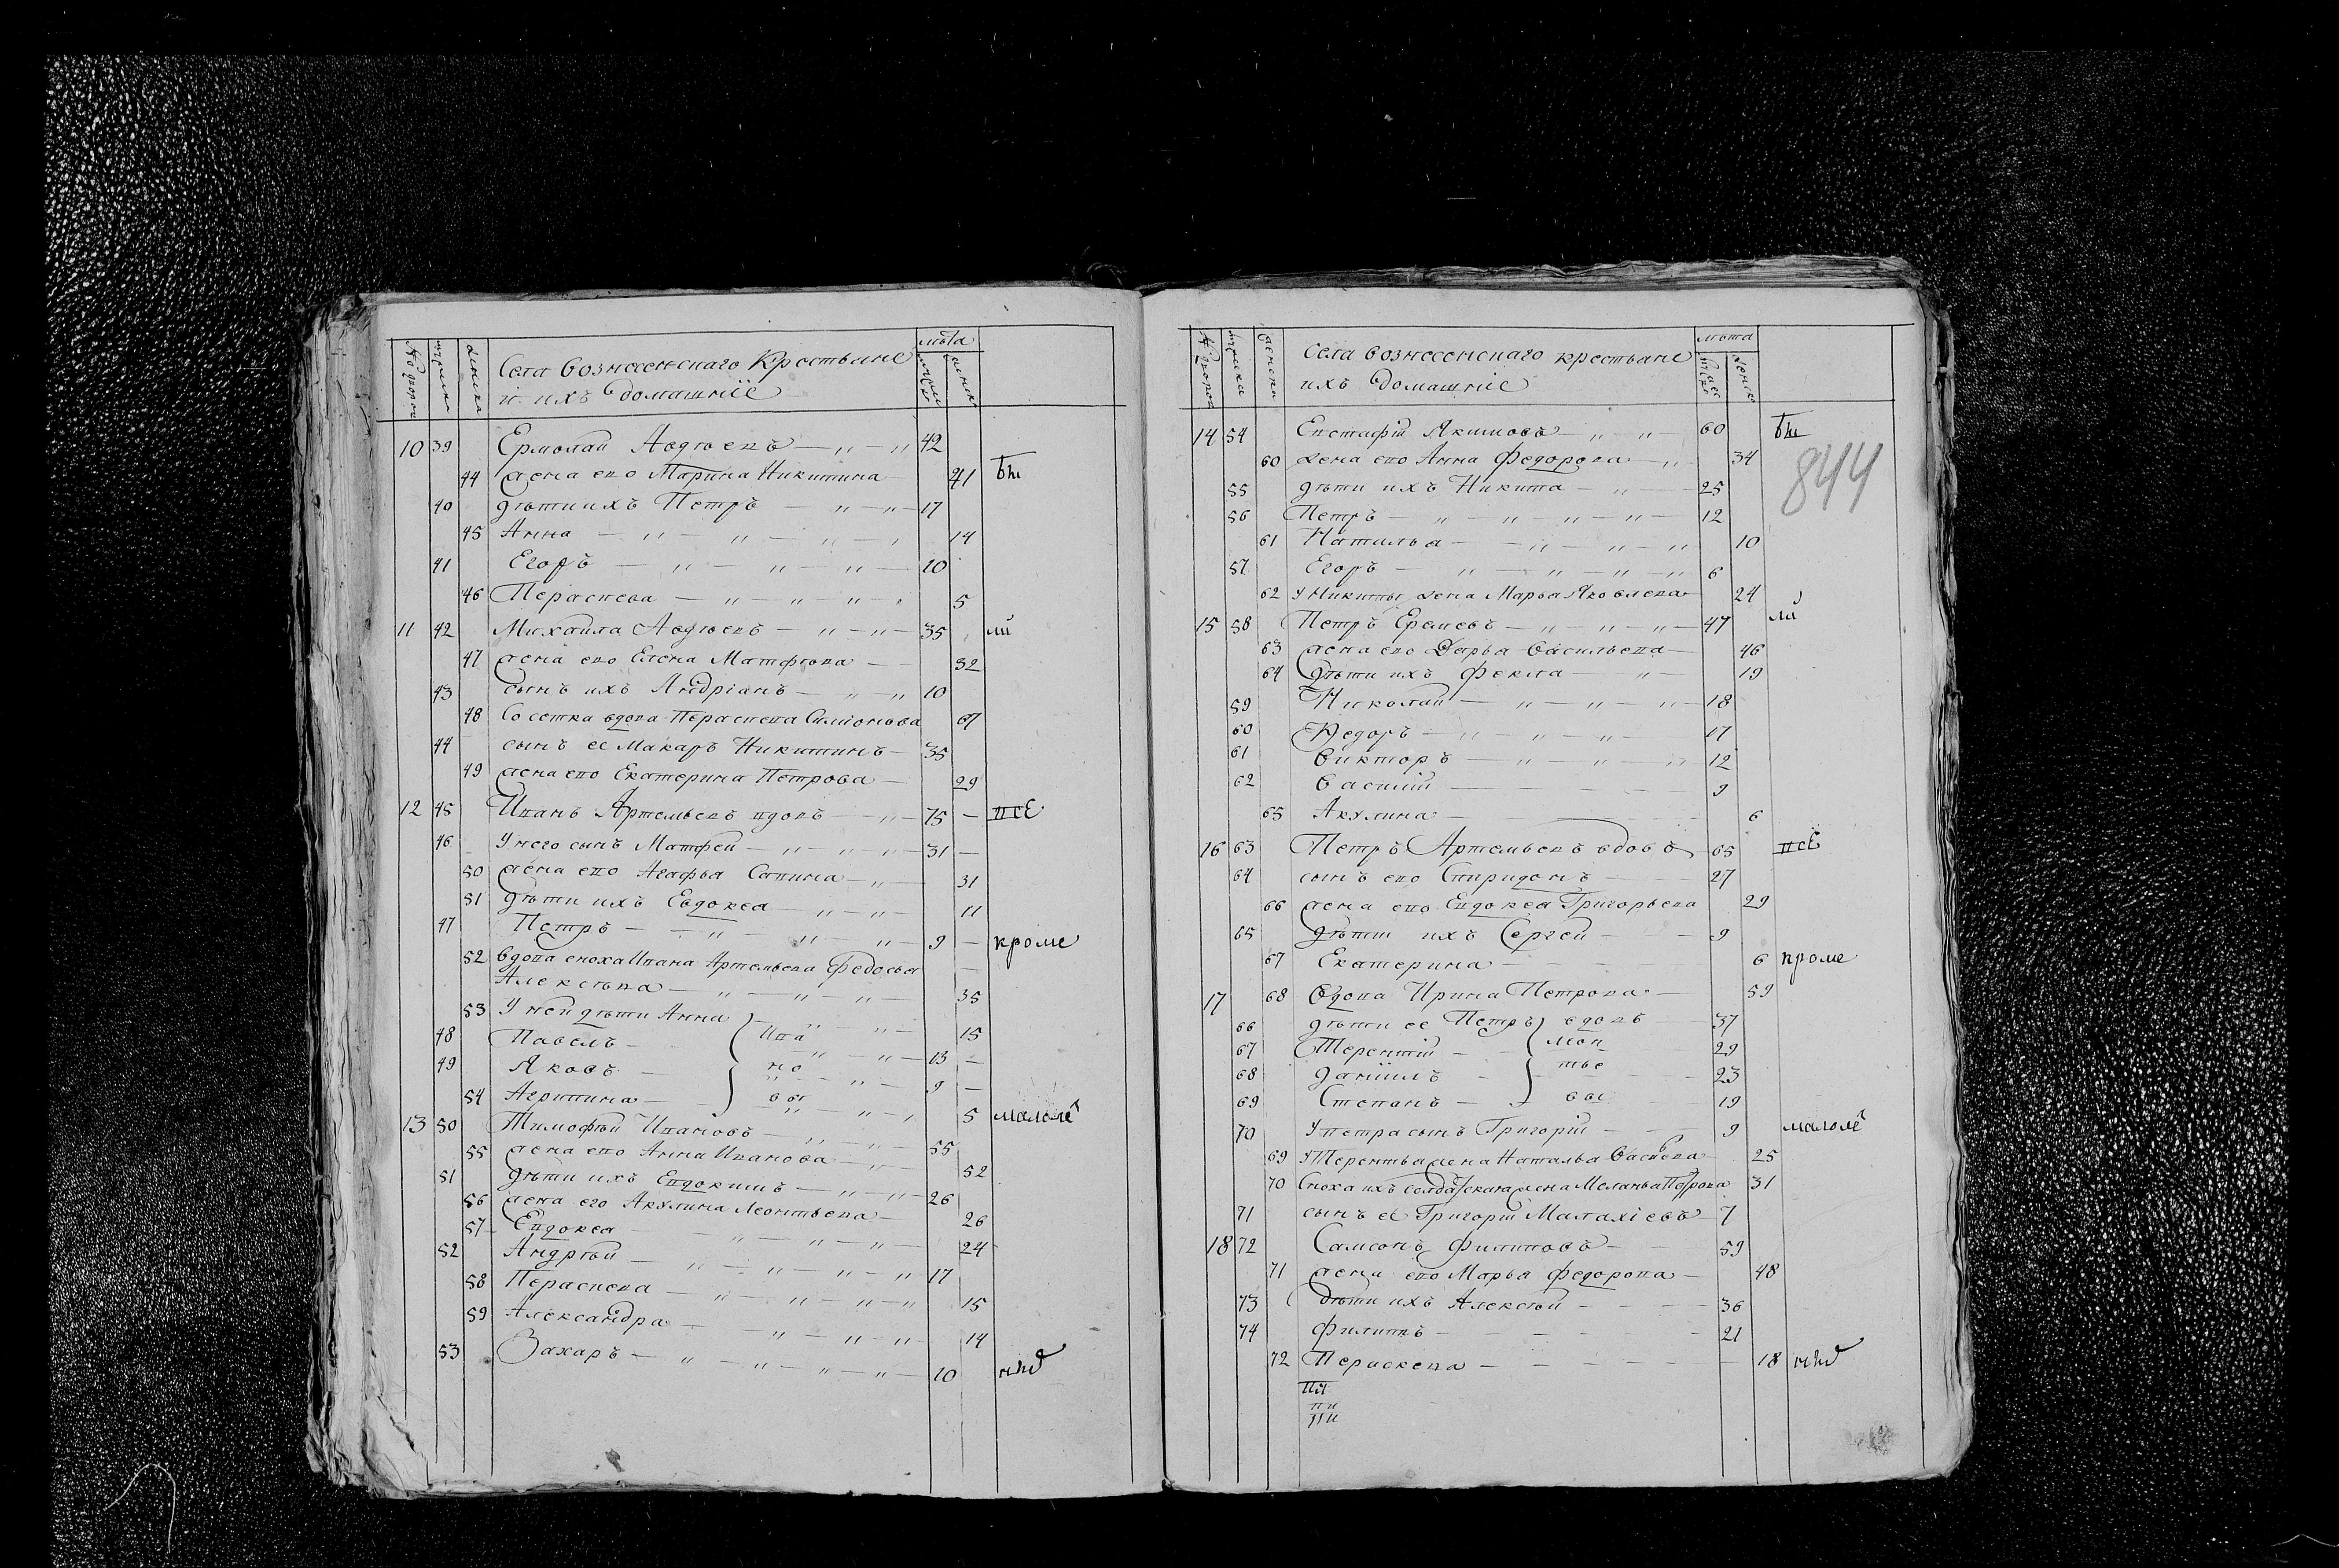 № дворов мужска женска Села вознесенскаго Крестьяне лѣта
и ихъ домашніе мужеск женск
10 39 Ермолай Авдѣевъ 42
44 жена его Марина Никитина 41 бы
40 дѣти ихъ Петръ 17
45 Анна 14
41 Егоръ 10
46 Параскева 5
11 42 Михайла Авдѣевъ 35 ли
47 жена его Елена Матфѣева 32
43 сынъ ихъ Андріанъ 10
48 вдова Параскева Симіонова 67
44 сынъ ее Макаръ Никитинъ 35
49 жена его Екатерина Петрова 29
12 45 Иванъ Артемьевъ вдовъ 75 — все
46 У него сынъ Матфей 31 —
50 жена его Агафья Савина 31
51 дѣти ихъ Евдокеа 11
47 Петръ 9 — кроме
52 вдова сноха Ивана Артемьева Федосья —
Алексѣева 35
53 У ней дѣти Анна 15
48 Павелъ Ива 13 —
49 Яковъ но 9 —
54 Агрипина вы 5 малолѣ
13 50 Тимофѣй Ивановъ 55
55 жена его Анна Иванова 52
51 дѣти ихъ Евдокимъ 26
56 жена его Акулина Леонтьева 26
57 Евдокеа 24
52 Андрѣй 17
58 Параскева 15
59 Александра 14
53 Захаръ 10
№ дворов мужска женска Села вознесенскаго крестьяне лѣта
ихъ домашніе мужеск женск
844
14 54 Евстафій Акимовъ 60 бы
60 жена его Анна Федорова 34
55 дѣти ихъ Никита 25
56 Петръ 12
61 Наталья 10
57 Егоръ 6
62 У Никиты жена Марья Яковлева 24
15 58 Петръ 47 ли
63 жена его Дарья Васильева 46
64 дѣти ихъ Фекла 19
59 Николай 18
60 Федоръ 17
61 Викторъ 12
62 Василій 9
65 Акулина 6
16 63 Петръ Артемьевъ вдовъ 65 все
64 сынъ его Спиридонъ 27
66 жена его Евдокеа Григорьева 29
65 дѣти ихъ Сергей 9
67 Екатерина 6 кроме
17 68 Вдова Ирина Петрова 59
66 дѣти ее Петръ вдовъ 37
67 Терентій 29
68 Даніилъ 23
69 Степанъ вы 19
70 У петра сынъ Григорій 9 малолѣ
69 У Терентья жена Наталья 25
70 Сноха ихъ солдатская жена Меланья Петрова 31
71 сынъ ее Григорій Малахіевъ 7
18 72 Самсонъ Филиповъ 59
71 жена его Марья Федорова 48
73 дѣти ихъ Алексѣй 36
74 Филипъ 21
72 Параскева 18